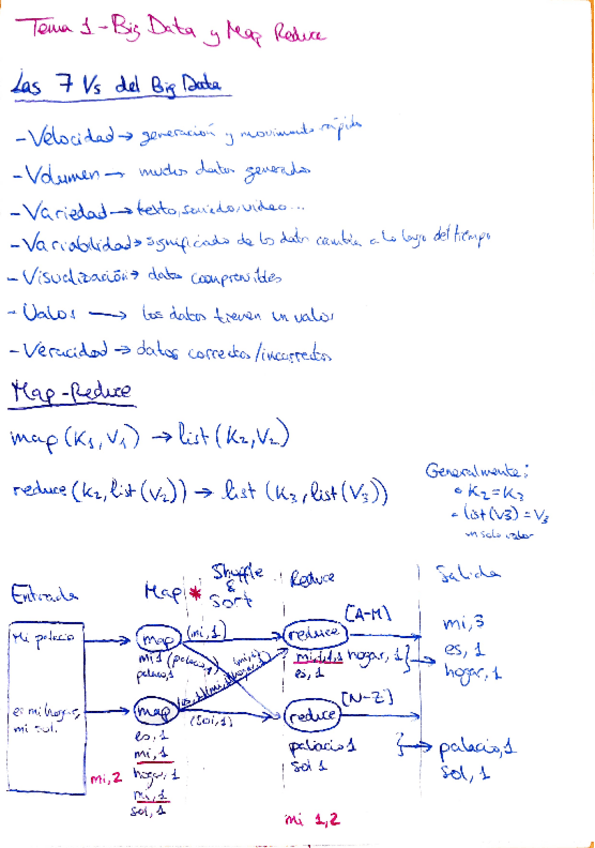 Tema 1 - Big Data y Map Reduce
Las 7 Vs del Big Data
- Velocidad → generación y movimiento rápido
- Volumen → muchos datos generados
- Variedad → texto, sonido, video...
- Variabilidad → significado de los datos cambia a lo largo del tiempo
- Visualización → datos comprensibles
- Valor → los datos tienen un valor
- Veracidad → datos correctos/incorrectos
Map-Reduce
map (K1, V1) → list (K2, V2)
reduce (K2, list (V2)) → list (K3, list (V3))
Generalmente:
• K2 = K3
• list (V3) = V3
un solo valor
Entrada Map * Shuffle & Sort Reduce Salida
Mi palacio
map
(mi, 1)
(palacio, 1)
mi 1
palacio, 1
es mi hogar,
mi sol.
map
(mi, 1)
(sol, 1)
es, 1
mi, 1
hogar, 1
mi, 1
sol, 1
mi, 2
reduce
[A-M]
mi, 1, 1, 1 hogar, 1
es, 1
reduce
[N-Z]
palacio 1
sol 1
mi 1,2
mi, 3
es, 1
hogar, 1
palacio, 1
sol, 1